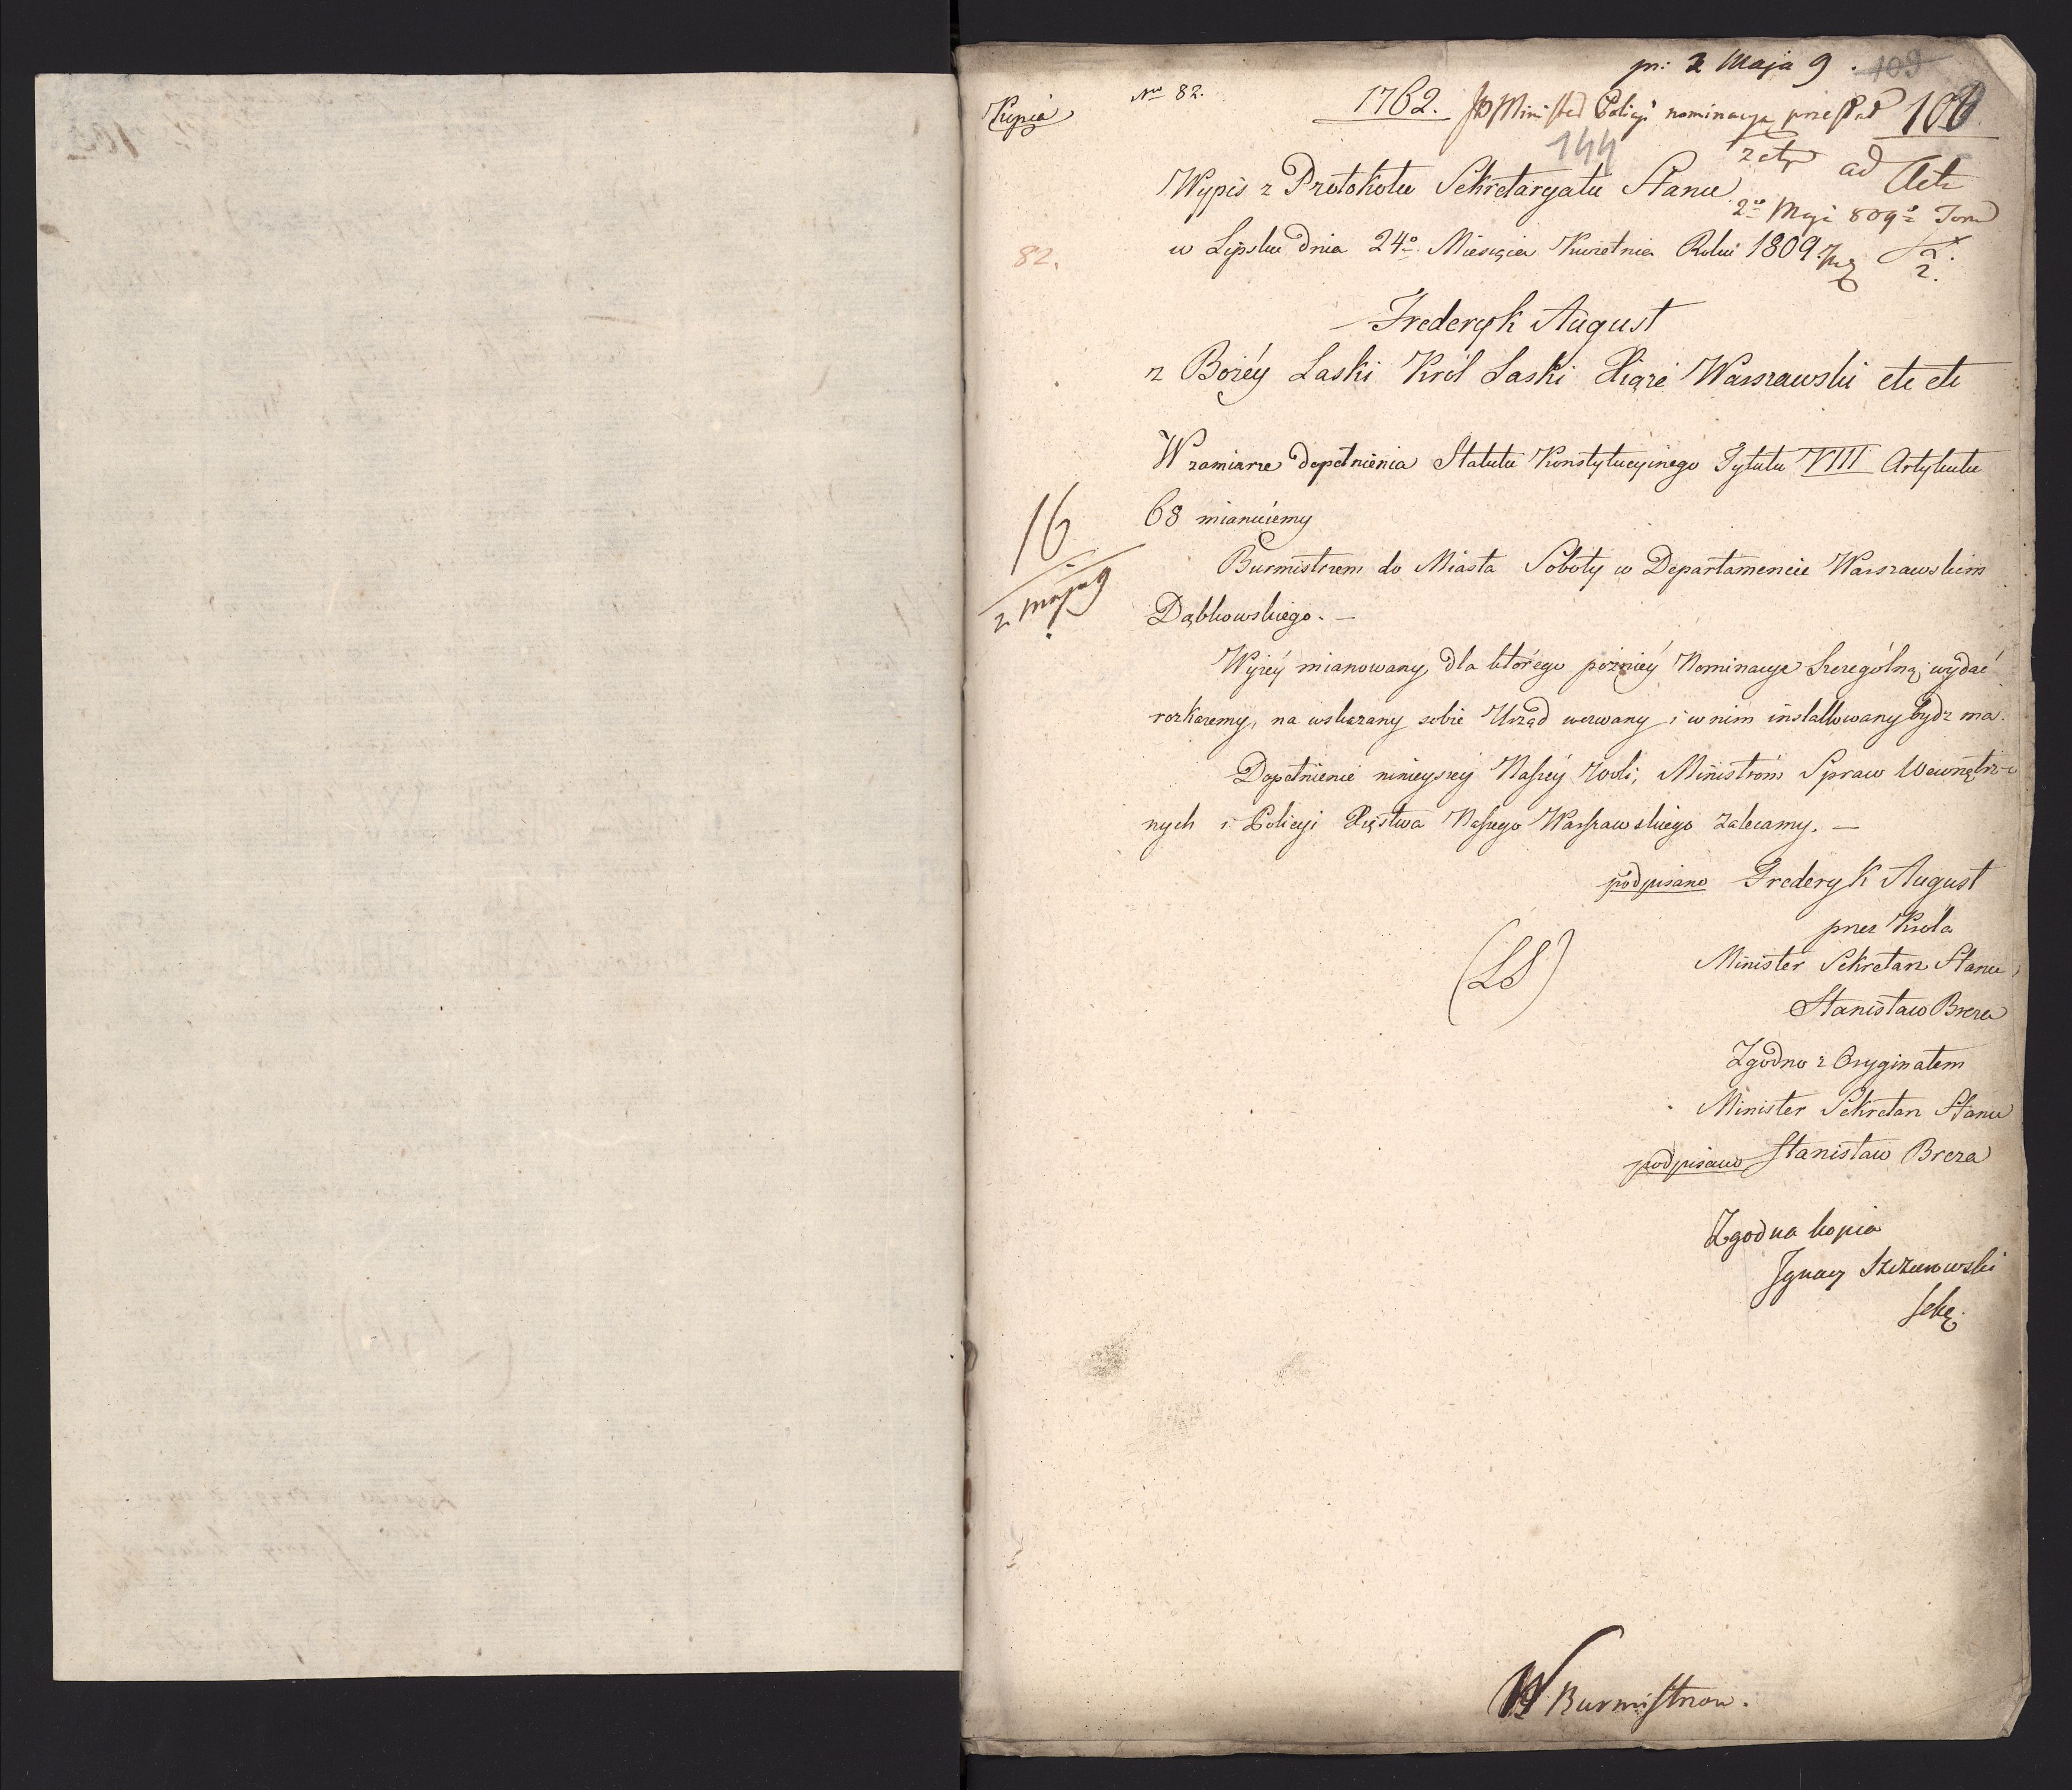 pr: 2 Maja 9. 109
Kopia
No 82.
1762. JP Minister Policyi nominacyą 108
144
ad Acta
Wypis z Protokołu Sekretaryatu Stanu
2do Maji 809o
82.
w Lipsku dnia 24o Miesiąca Kwietnia Roku 1809.
2.
Frederyk August
z Bożéy Łaski Król Saski Xiąże Warszawski etc etc
W zamiarze dopełnienia Statutu Konstytucyinego Tytułu VIII Artykułu
68 mianuiemy
16
2 Maja 9
Burmistrzem do Miasta Soboty w Departamencie Warszawskim
Dąbkowskiego. —
Wyżéy mianowany, dla którego pożniéy Nominacyą Szczególną wydać
rozkażemy, na wskazany sobie Urząd wezwany i w nim installowany bydź ma.
Dopełnienie ninieyszéy Naszéy Woli, Ministróm Spraw Wewnętrz-
nych i Policyi Xięstwa Naszego Warszawskiego zalecamy. —
podpisano Frederyk August
przez Króla
(LS)
Minister Sekretarz Stanu
Stanisław Breza
Zgodno z Oryginałem
Minister Sekretarz Stanu
podpisano Stanisław Breza
Zgodna kopia
Ignacy
Sekr.
W Burmistrzow.